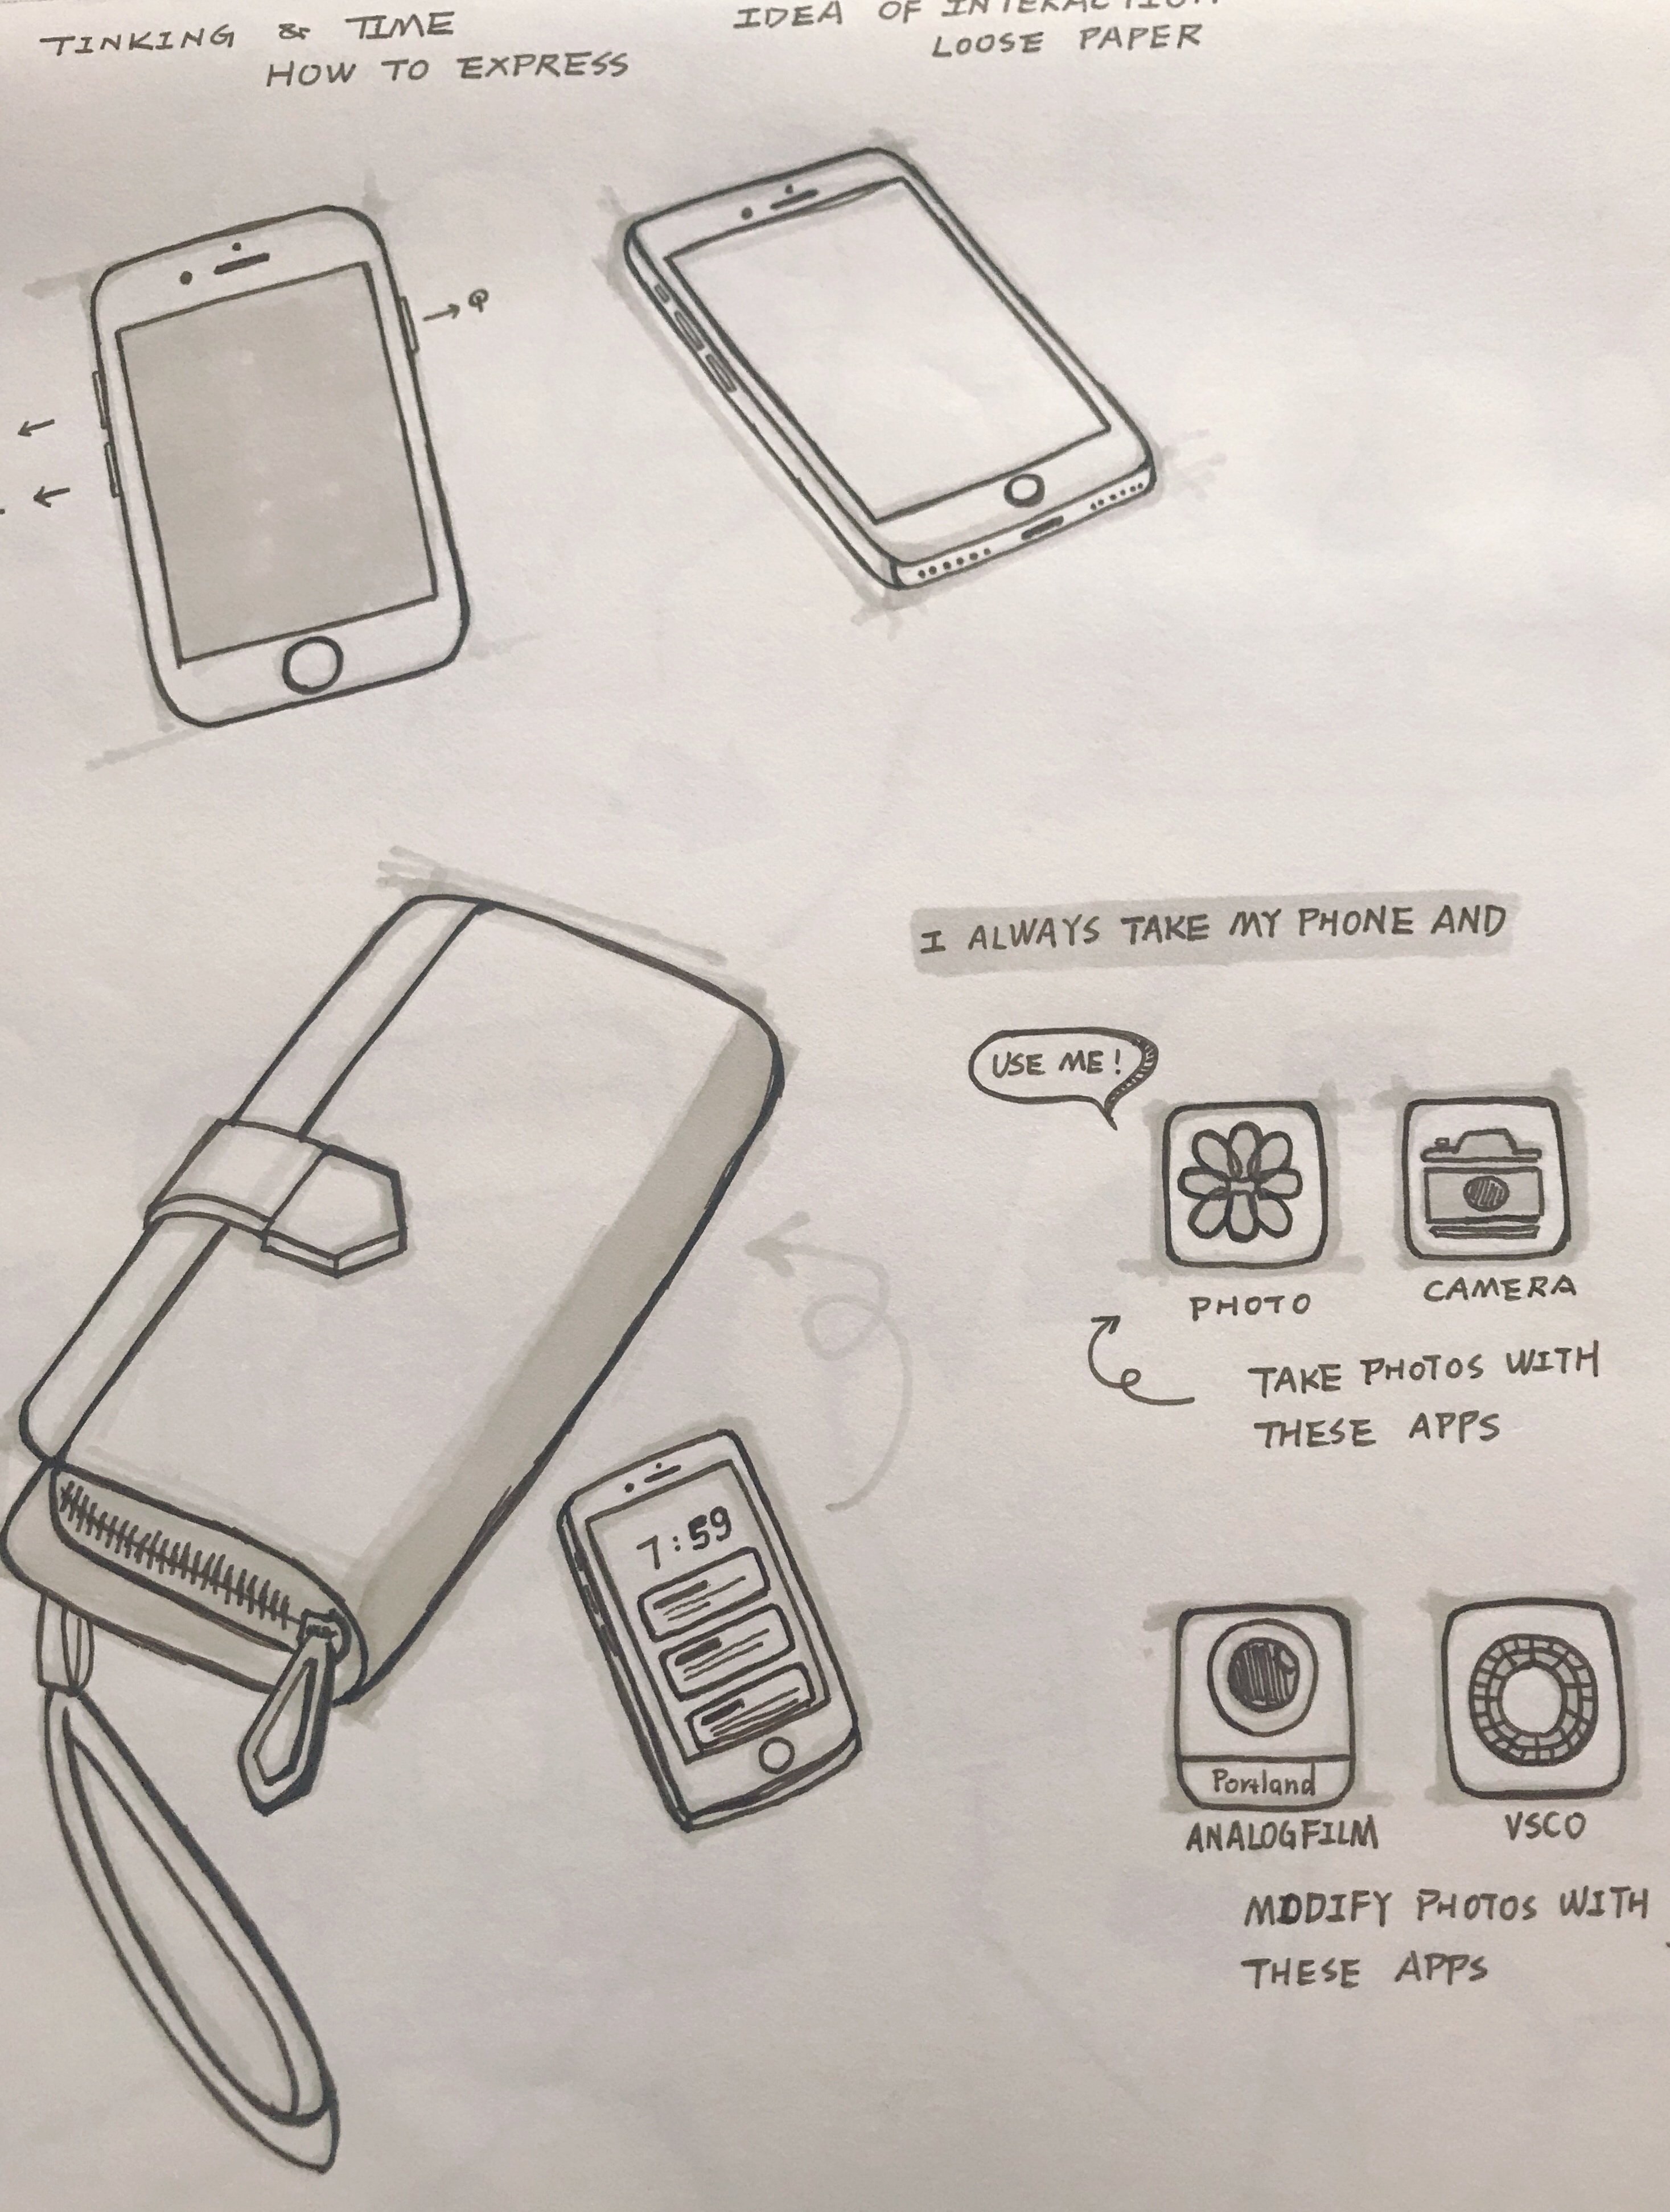 TINKING & TIME
HOW TO EXPRESS
IDEA OF INTERACTION
LOOSE PAPER
I ALWAYS TAKE MY PHONE AND
USE ME!
PHOTO
CAMERA
TAKE PHOTOS WITH
THESE APPS
7:59
Portland
ANALOGFILM
VSCO
MODIFY PHOTOS WITH
THESE APPS